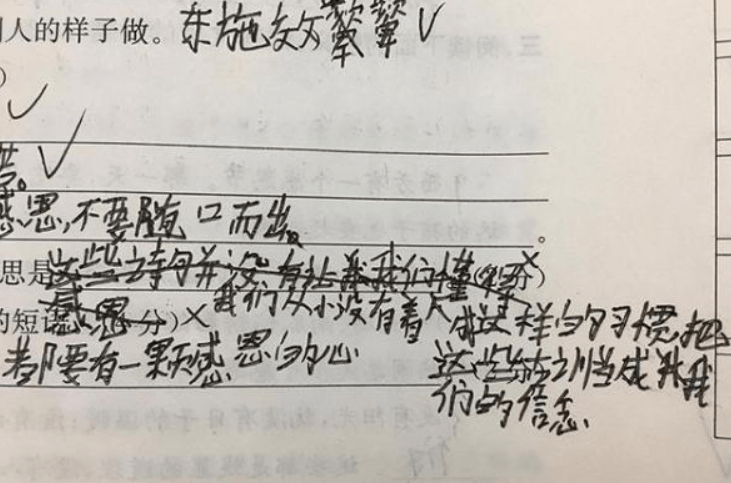 人的样子做。东施效颦
)
感恩,不要随口而出。
思是这些诗句并没有让我我们懂得分)
感恩
的短语 分)我们从小没有养成这样的习惯,把
都要有一颗感恩的心
这些 当成 我
们的信念